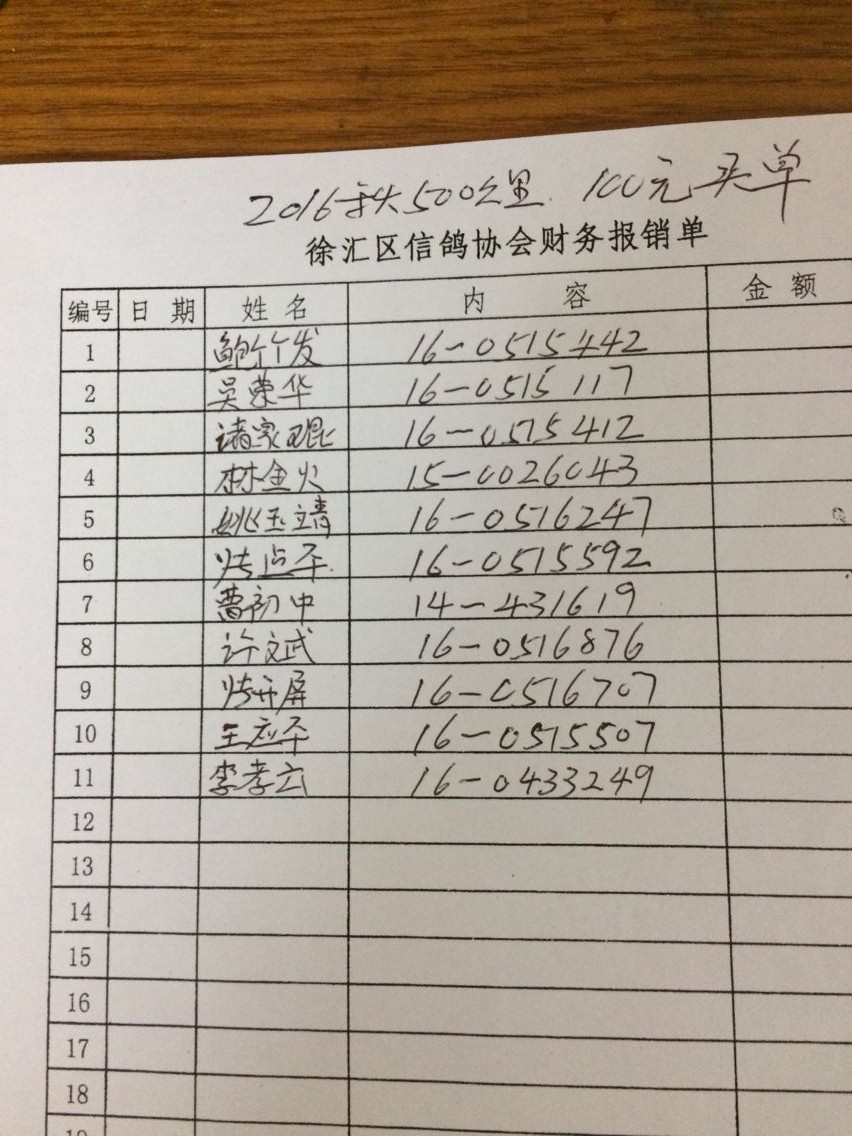 2016秋500公里 100元买单
徐汇区信鸽协会财务报销单
编号 日 期 姓 名 内 容 金 额
1 鲍竹发 16-0515442
2 吴荣华 16-0515117
3 诸家琨 16-0515412
4 林金火 15-0026043
5 姚玉靖 16-0516247
6 16-0515592
7 曹初中 14-431619
8 许文斌 16-0516876
9 开屏 16-0516707
10 王应 16-0515507
11 李孝云 16-0433249
12
13
14
15
16
17
18
19